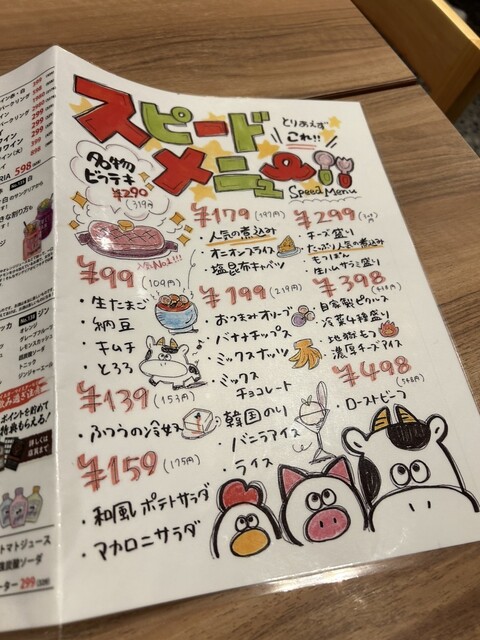 スピード
メニュー
とりあえず
これ!!
Speed Menu
名物
ビフテキ
¥290
(319円)
人気No1!!!
¥99 (109円)
・生たまご
・納豆
・キムチ
・とろろ
¥139 (153円)
・ふつうの冷奴
¥159 (175円)
・和風ポテトサラダ
・マカロニサラダ
¥179 (197円)
・人気の煮込み
・オニオンスライス
・塩昆布キャベツ
¥199 (219円)
・おつまみオリーブ
・バナナチップス
・ミックスナッツ
・ミックス
チョコレート
・韓国のり
・バニラアイス
・ライス
¥299
・チーズ盛り
・たっぷり人気の煮込み
・もつぽん
・生ハムサラミ盛り
¥398
・自家製ピクルス
・冷菜4種盛り
・地獄もつ
・濃厚チーズアイス
¥498
・ローストビーフ
598
ジン
オレンジ
グレープフルーツ
トニック
ジンジャーエール
ポイントを貯めて
特典もらえる!
詳しくは
裏面まで
トマトジュース
強炭酸ソーダ
299